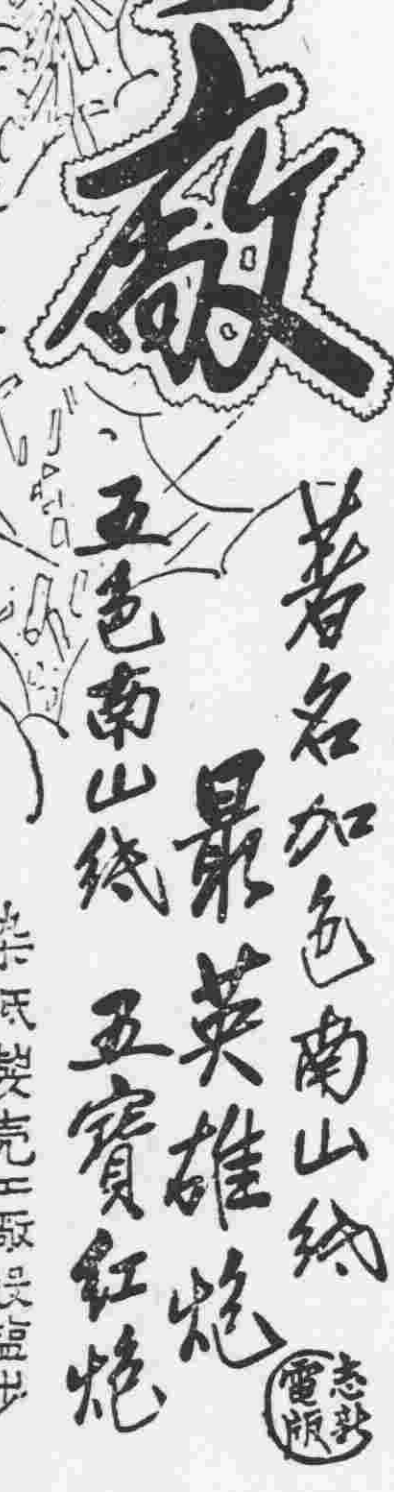 廠
著名加色南山紙
最英雄炮
五色南山紙 五寶紅炮
志新
電版